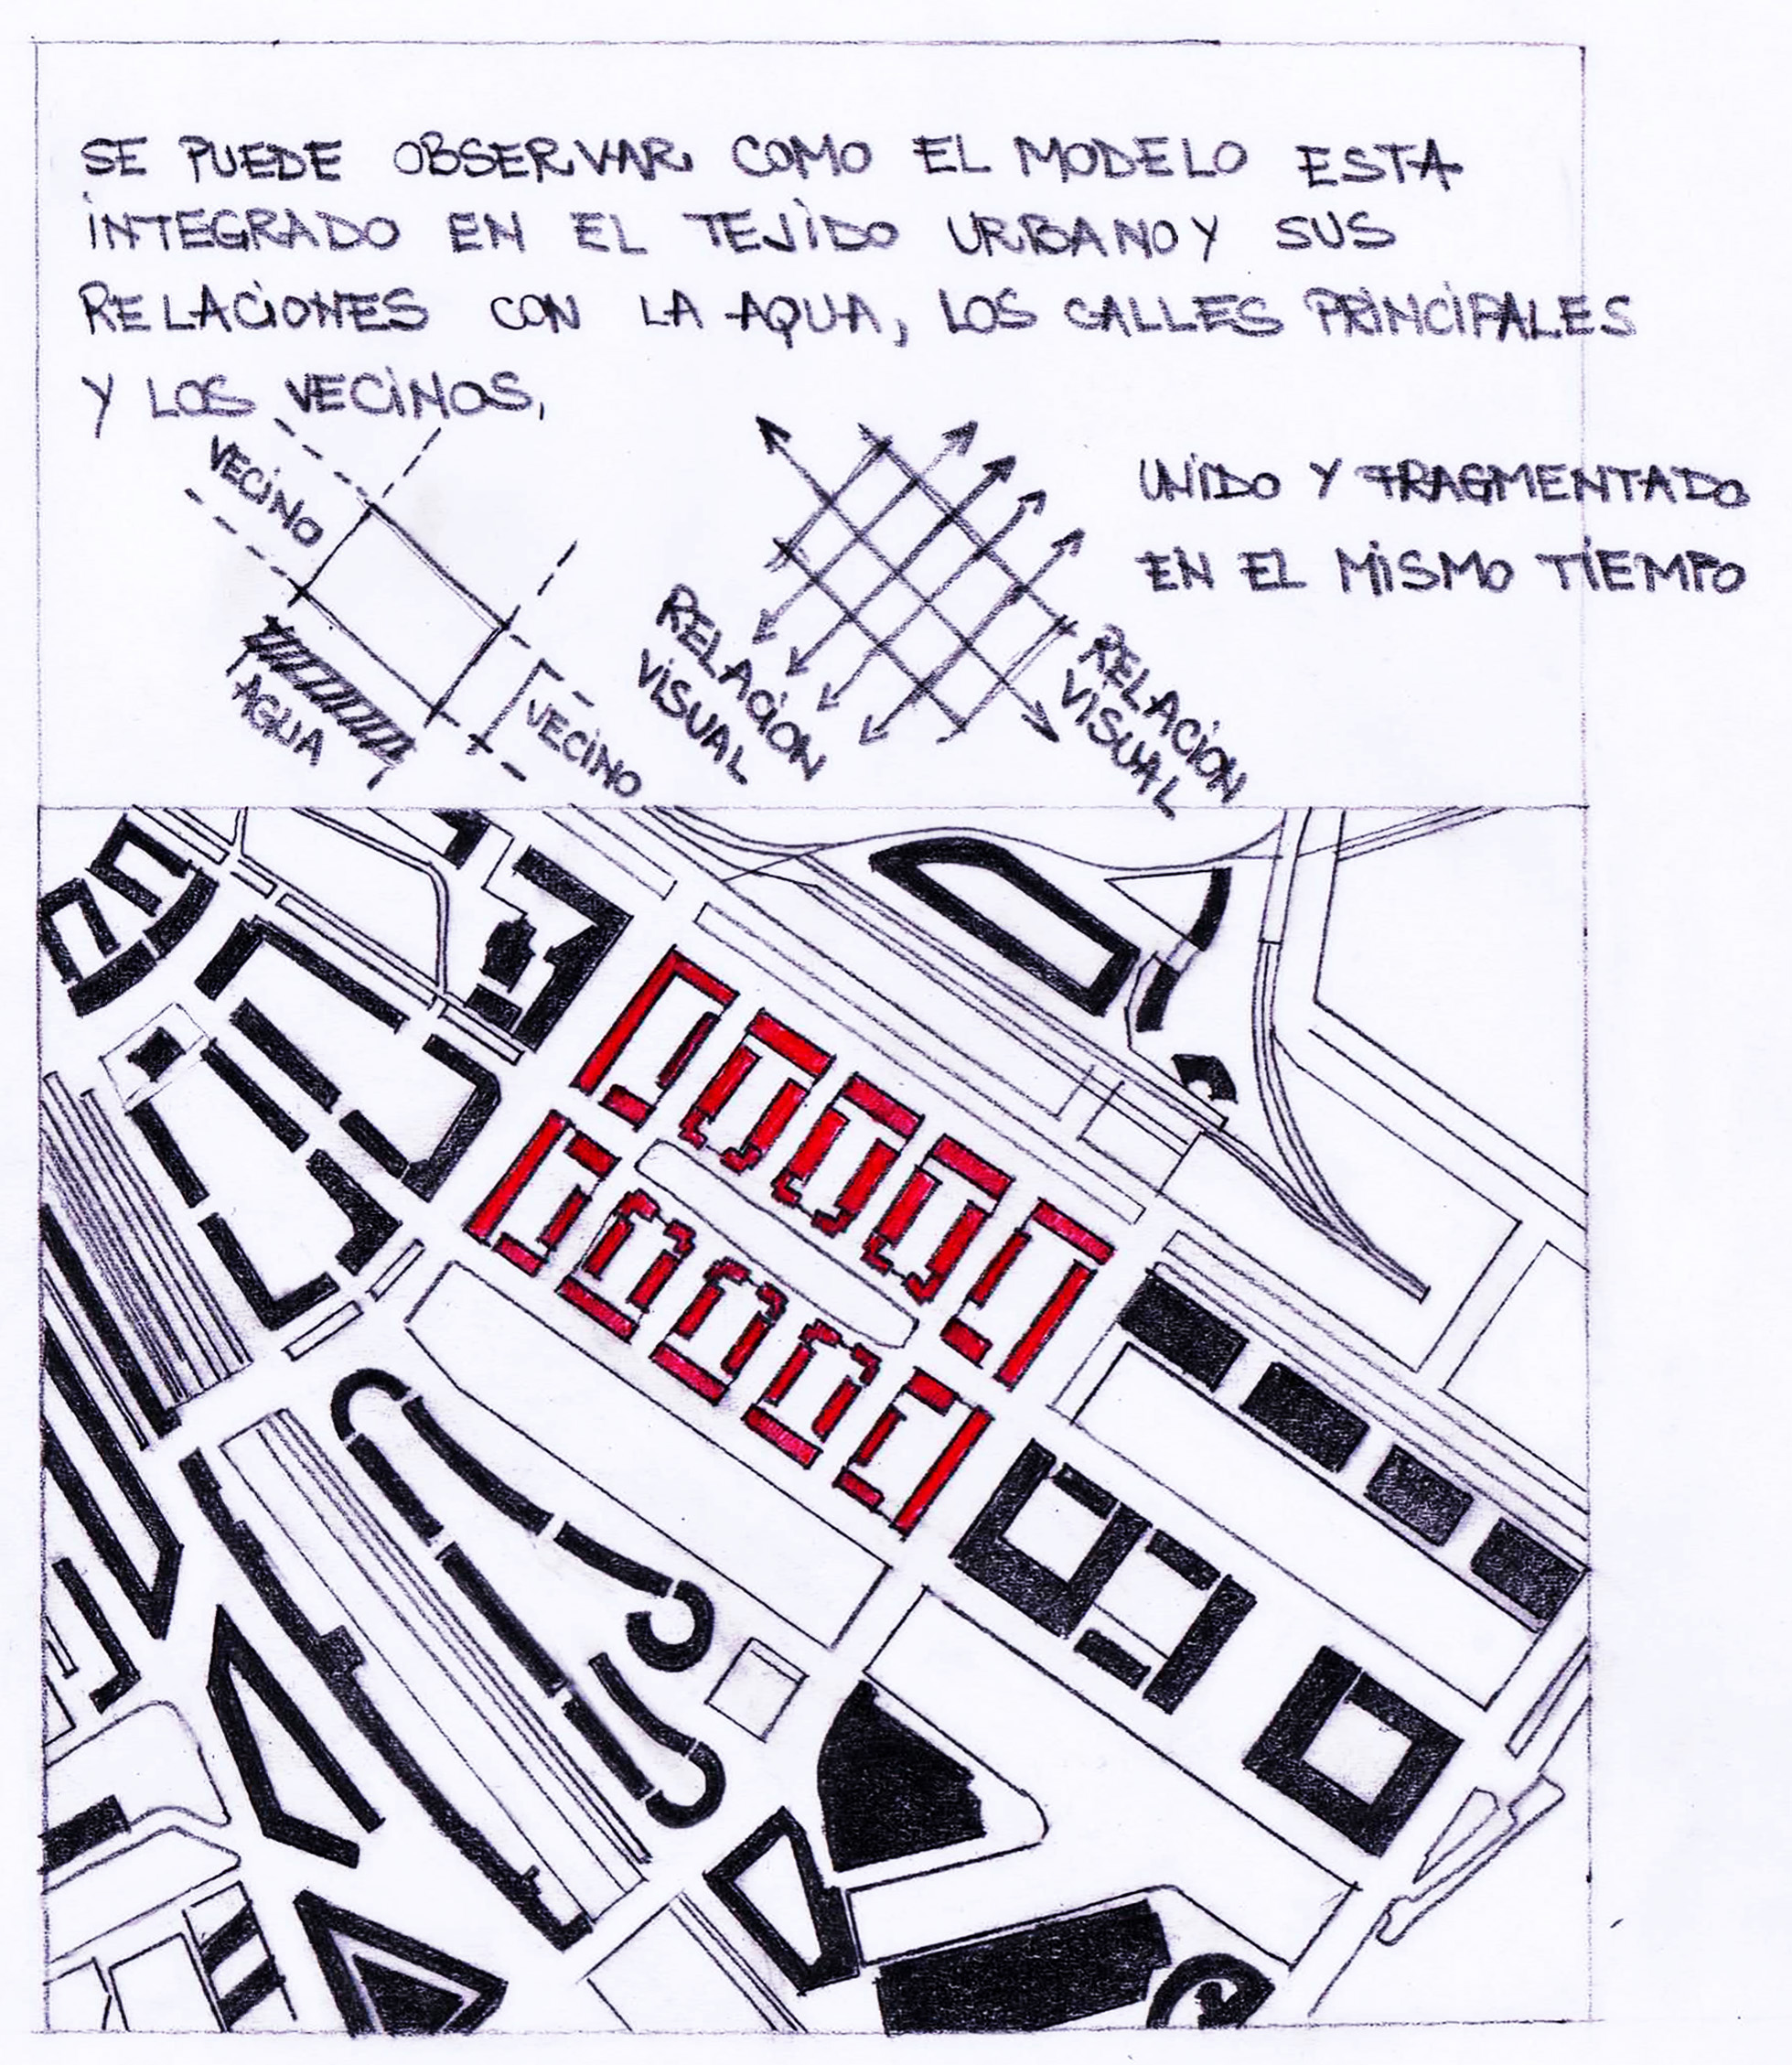 SE PUEDE OBSERVAR COMO EL MODELO ESTA
INTEGRADO EN EL TEJIDO URBANO Y SUS
RELACIONES CON LA AQUA, LOS CALLES PRINCIPALES
Y LOS VECINOS,
VECINO
AGUA
VECINO
RELACION
VISUAL
RELACION
VISUAL
UNIDO Y FRAGMENTADO
EN EL MISMO TIEMPO